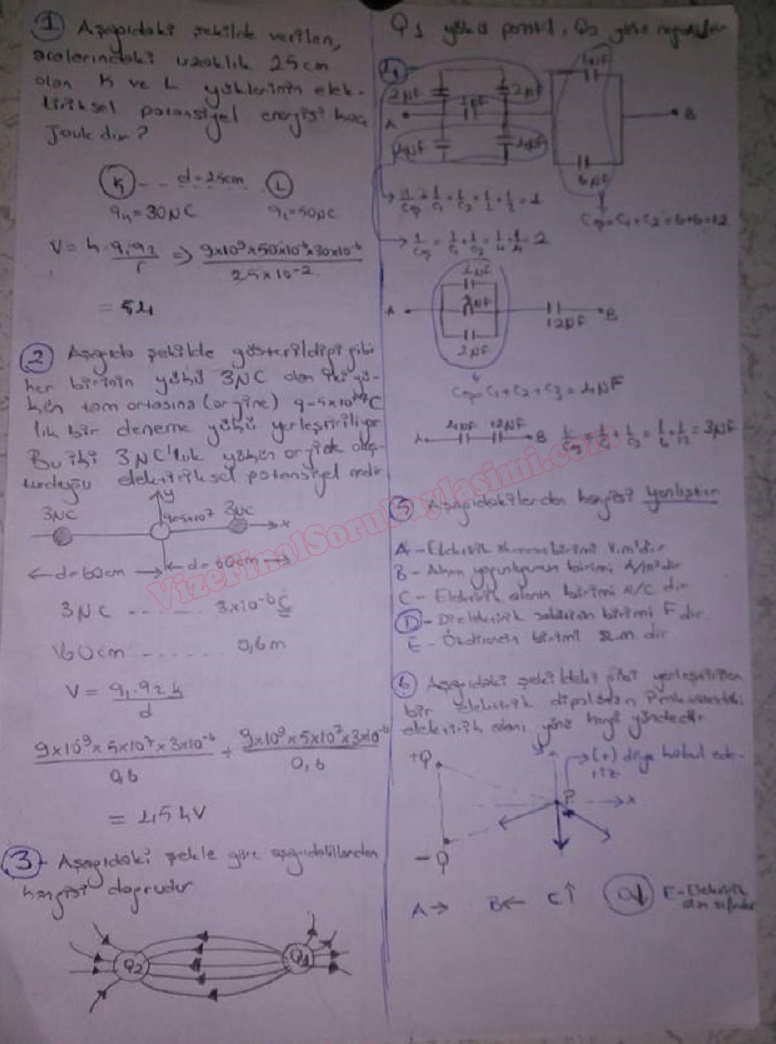 1 Aşağıdaki şekilde verilen,
aralarındaki uzaklık 25cm
olan K ve L yüklerinin elek-
tiriksel potansiyel enerjisi kaç
Joule dür?
K d=25cm L
q =30NC q =50NC
V = k. q1q2 / r => 9x10^9 x50x10^-6 x30x10^-6 / 25x10^-2
= 54
2 Aşağıda şekilde gösterildiği gibi
her birinin yükü 3NC olan iki yü-
kün tam ortasına (orijine)
lik bir deneme yükü yerleştiriliyor
Bu iki 3NC'luk yükün orjinde oluş-
turduğu elektiriksel potansiyel nedir
y
3NC 3NC x
d=60cm d=60cm
3NC ...... 3x10^-6 C
60cm ...... 0,6m
V = q1.q2 k / d
9x10^9 x 5x10^7 x 3x10^-6 / 0,6 + 9x10^9 x 5x10^7 x 3x10^-6 / 0,6
= 45kV
3 - Aşağıdaki şekle göre aşağıdakilerden
hangisi doğrudur
Q2 Q1
Q1 yükü pozitif, Q2 yükü negatiftir
2NF 2NF
A B
6NF
Cep=C1+C2=6+6=12
A B
2NF 12NF
Cep=C1+C2+C3=4NF
4NF 12NF
B = 3NF
5 Aşağıdakilerden hangisi yanlıştır
A - Elektrik akısının birimi V.m'dir
B - Akım yoğunluğunun birimi A/m² dir
C - Elektrik alanın birimi N/C dir
D - Dielektirik sabitinin birimi F dir.
E - Özdirencin birimi Ω.m dir
6 Aşağıdaki şekildeki gibi yerleştirilen
bir elektirik dipolünün P noktasındaki
elektirik alanı yönü hangi yöndedir
+Q y (+) diye kabul ede-
riz
P x
-Q
A → B ← C ↑ d↓ E-Elektrik
alan sıfırdır
VizeFinalSoruPaylasimi.com